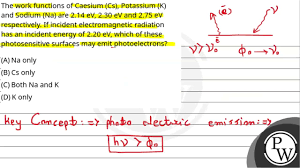 The work functions of Caesium (Cs), Potassium (K)
and Sodium (Na) are 2.14 eV, 2.30 eV and 2.75 eV
respectively. If incident electromagnetic radiation
has an incident energy of 2.20 eV, which of these
photosensitive surfaces may emit photoelectrons?
(A) Na only
(B) Cs only
(C) Both Na and K
(D) K only
(ē) ν
ν > ν₀ ϕ₀ → ν₀
Key Concept :=> photo electric emission :=>
hν > ϕ₀